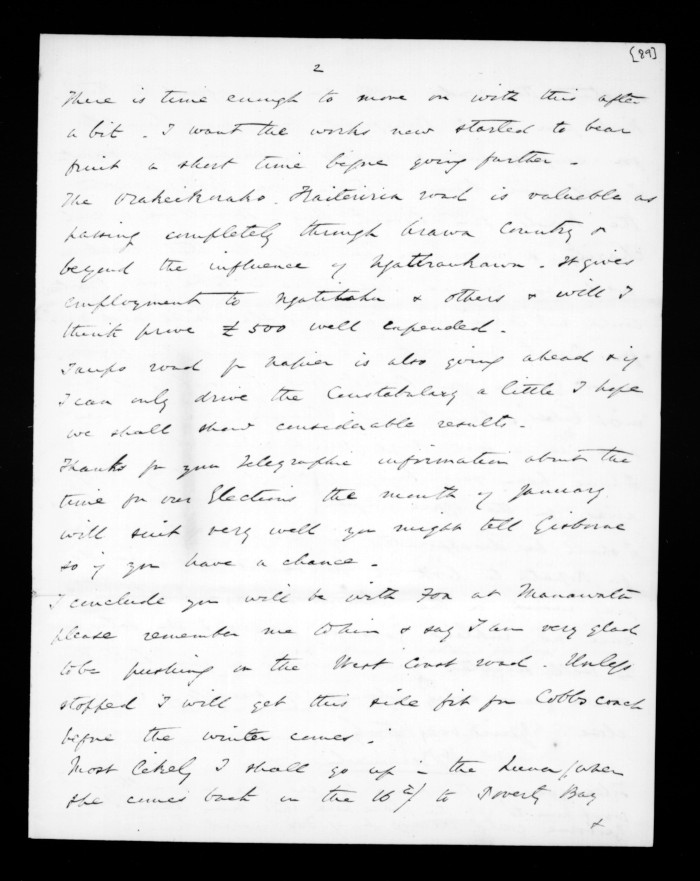 [89]
2
There is time enough to move on with this after
a bit - I want the works now started to bear
fruit a short time before going further -
The Orakeikorako. road is valuable as
passing completely through Arawa Country &
beyond the influence of Ngatiraukawa - It gives
employment to & others & will I
think prove £500 well expended -
Taupo road fr Napier is also going ahead & if
I can only drive the Constabulary a little I hope
we shall show considerable results -
Thanks for your Telegraphic information about the
time for our Elections the month of January
will suit very well you might tell Gisborne
so if you have a chance -
I conclude you will be with Fox at Manawatu
please remember me to him & say I am very glad
to be pushing on the West Coast road. Unless
stopped I will get this side fit for Cobbs coach
before the winter comes.
Most likely I shall go up in the Luna (when
she comes back on the 16th) to Poverty Bay
&